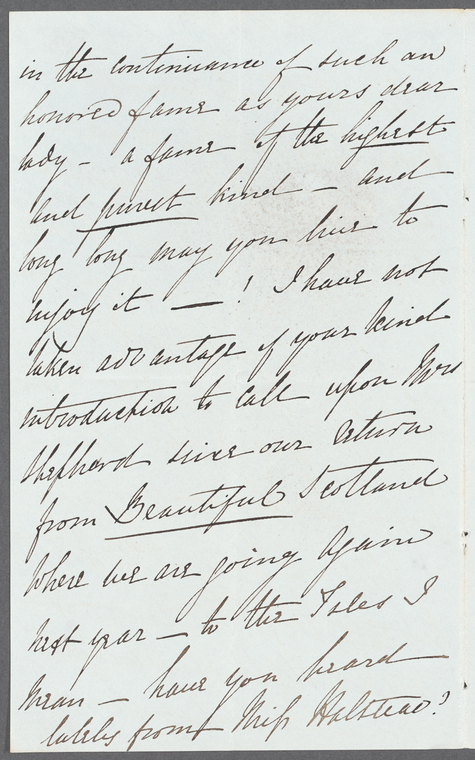 in the continuance of such an
honored fame as yours dear
lady - a fame of the highest
and purest kind - and
long long may you live to
enjoy it - ! I have not
taken advantage of your kind
introduction to call upon Mrs
Shepherd since our return
from Beautiful Scotland
where we are going again
next year - to the Isles I
mean - have you heard
lately from Miss Halstead?